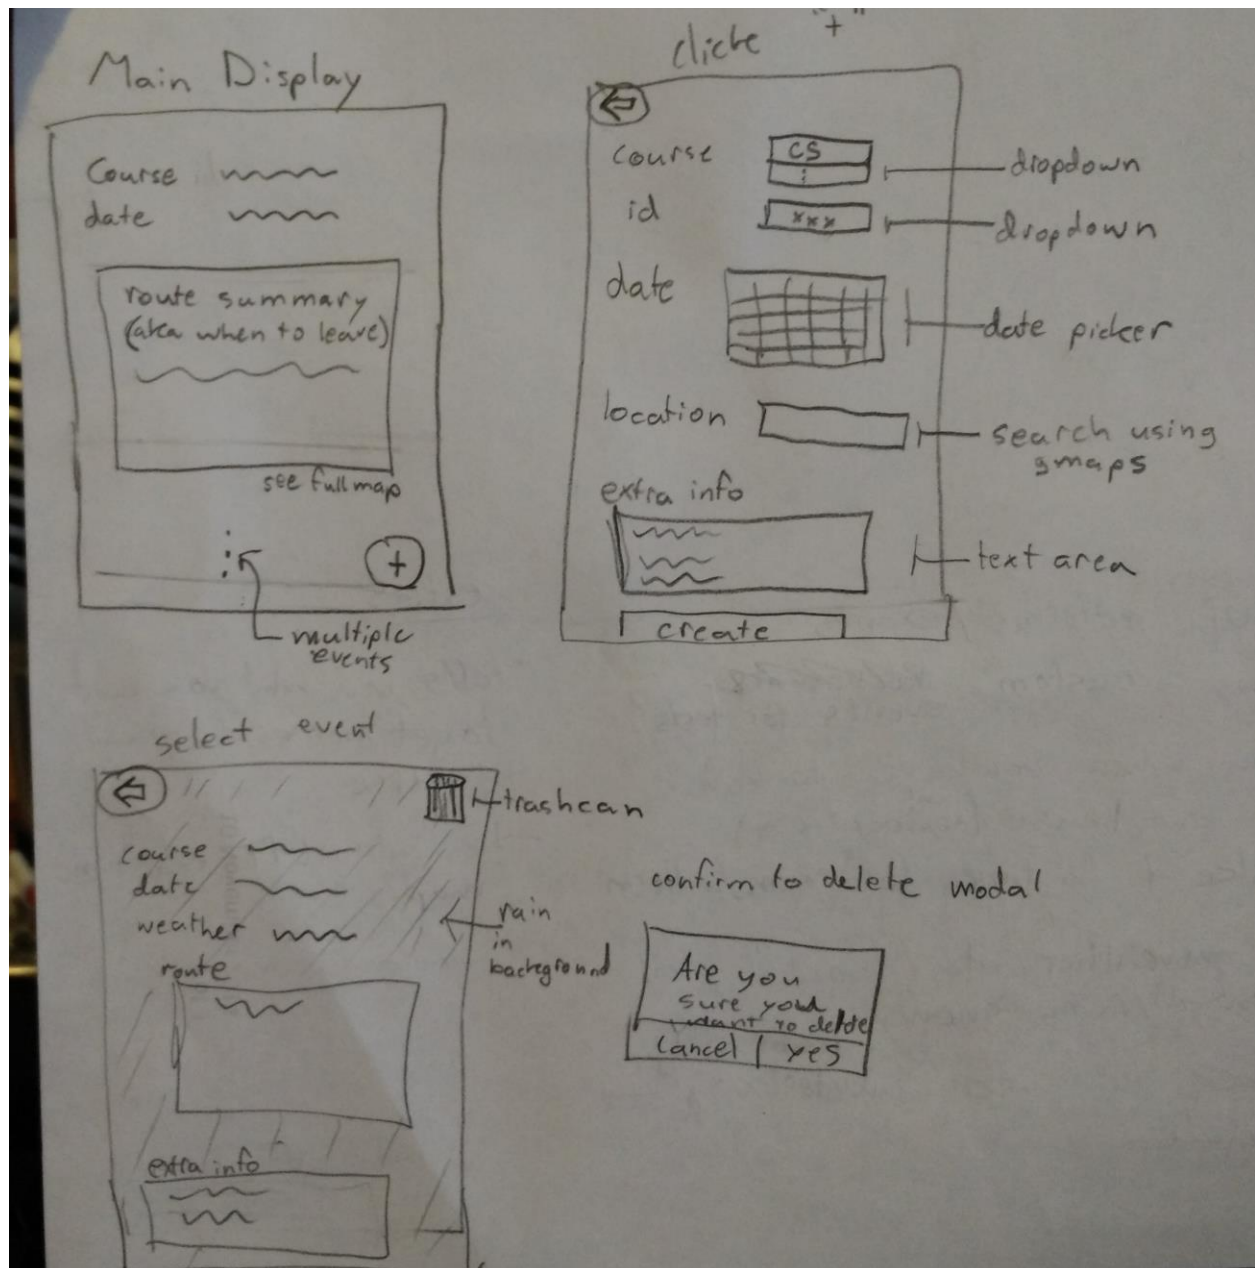 Main Display
Course
date
route summary
(aka when to leave)
see full map
+
multiple
events
clicke "+"
course
CS
dropdown
id
xxx
dropdown
date
date picker
location
search using
gmaps
extra info
text area
create
select event
trashcan
course
date
weather
rain
in
background
route
extra info
confirm to delete modal
Are you
sure you
want to delete
Cancel
yes